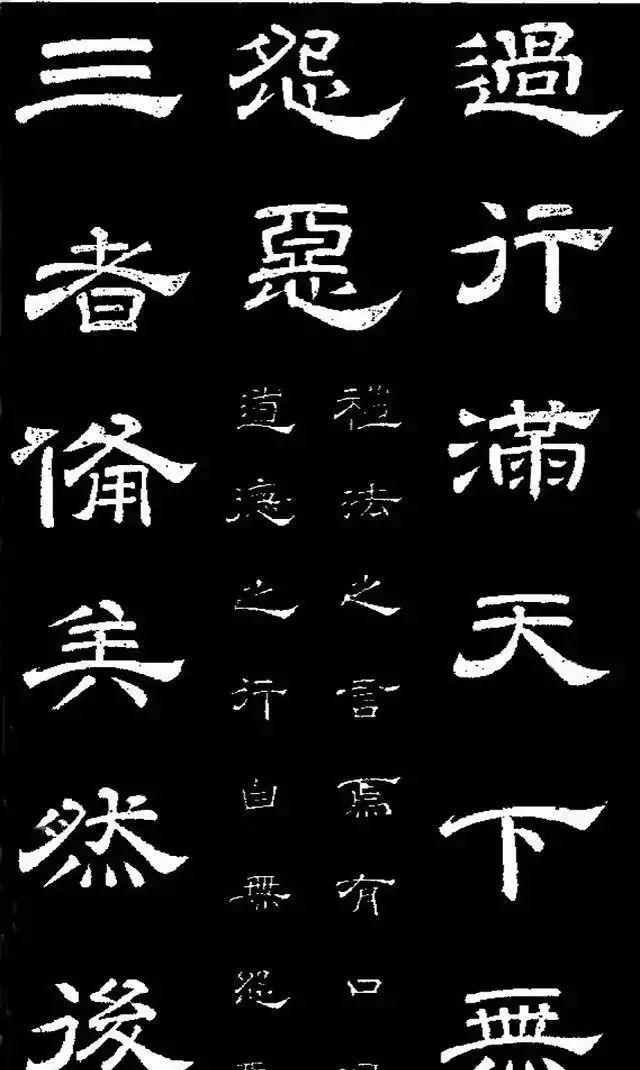 過行滿天下無
怨惡
禮法之言焉有口
道德之行自無怨
三者備矣然後